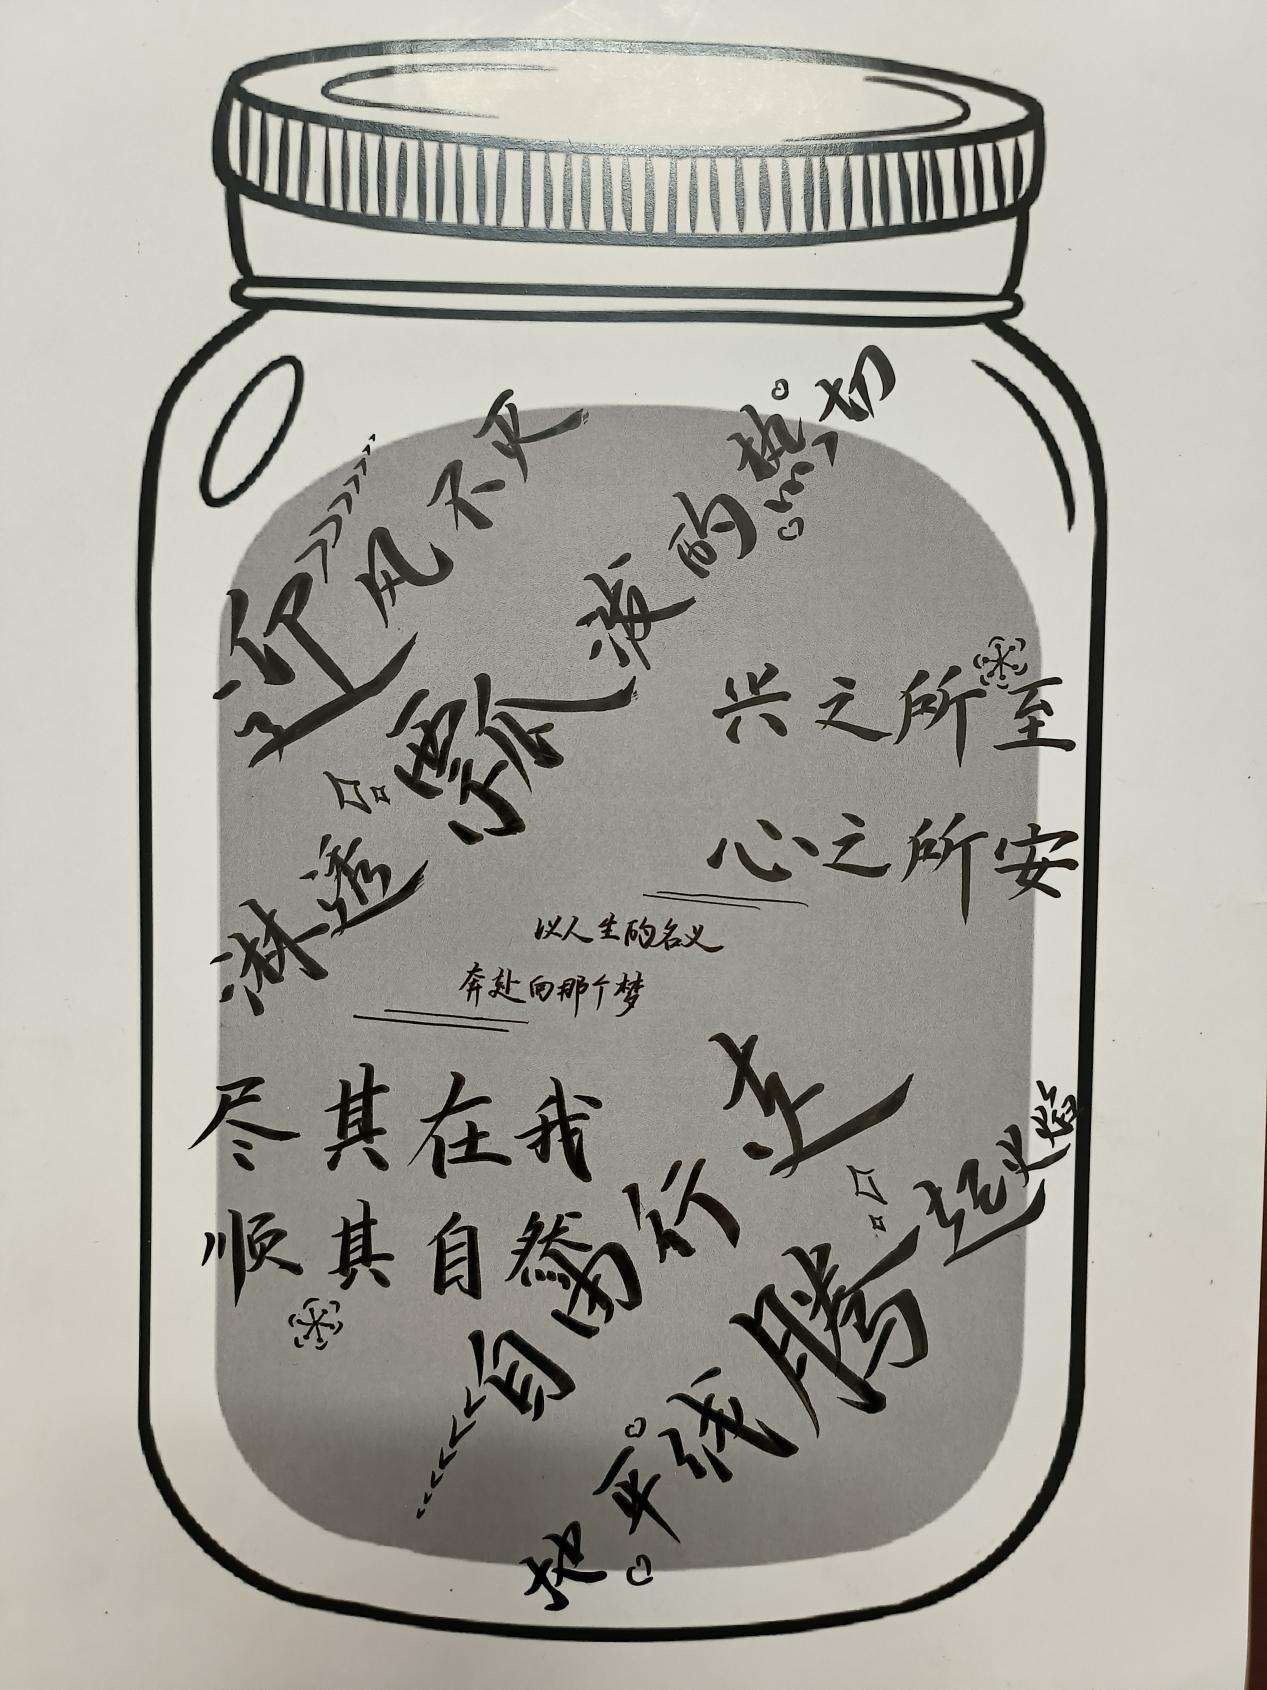 迎风不灭
淋透瓢泼的热切
兴之所至
心之所安
以人生的名义
奔赴向那个梦
尽其在我
顺其自然
自南行走
地平线腾起火焰